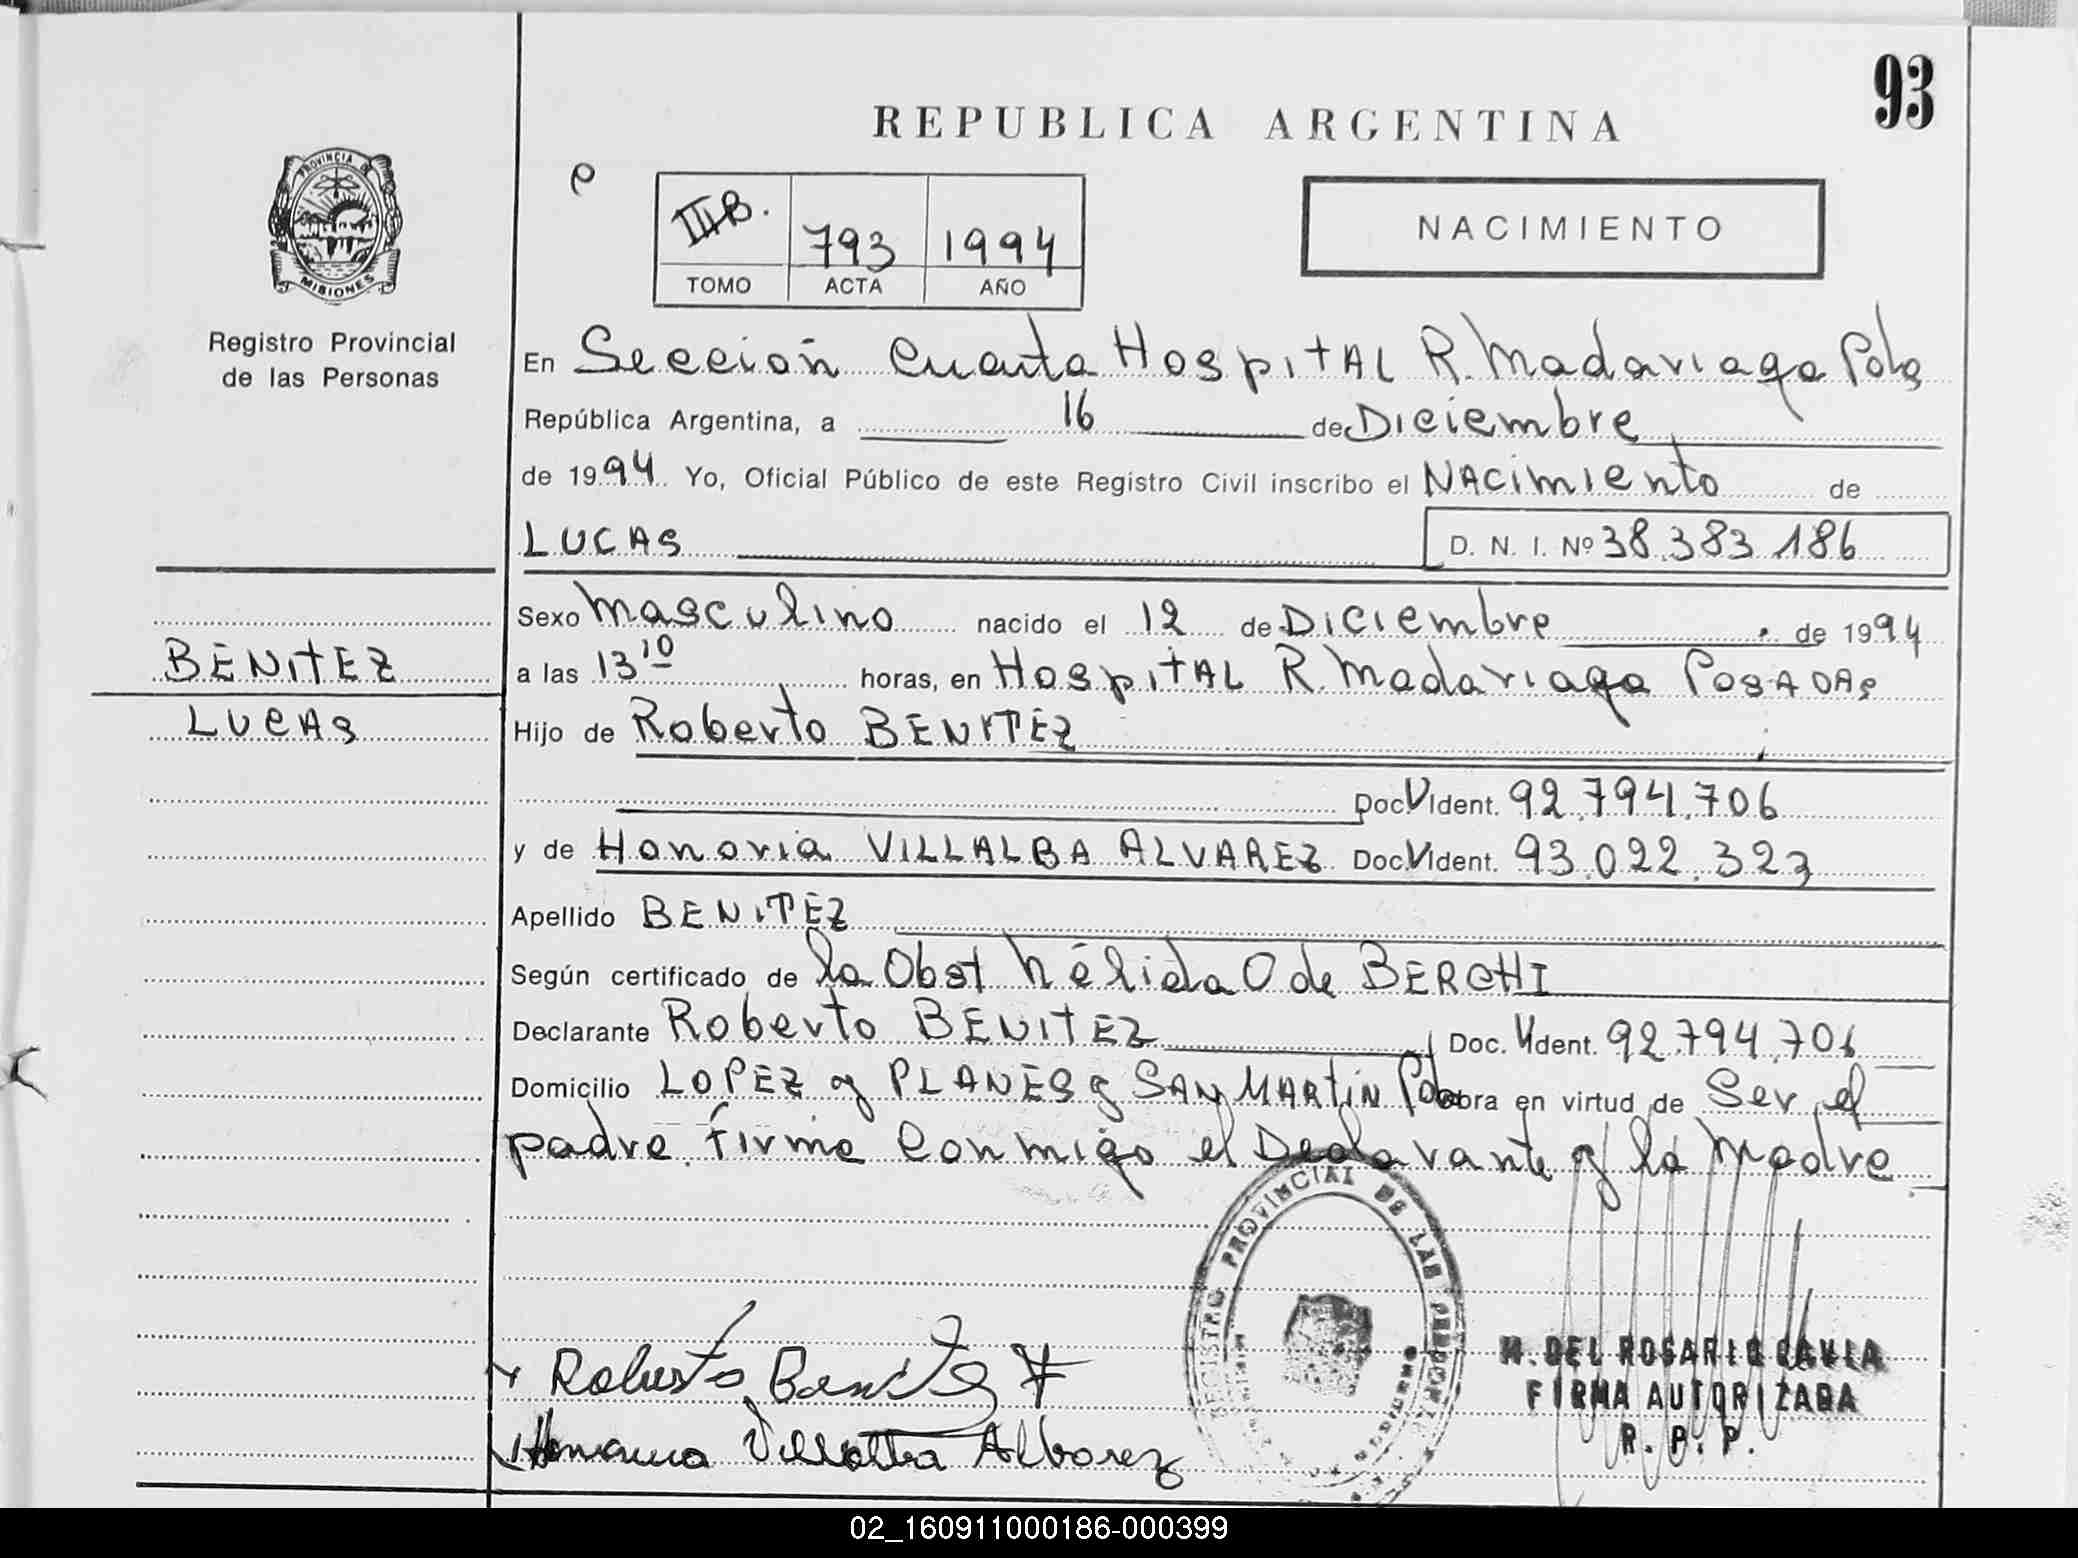 93
REPUBLICA ARGENTINA
PROVINCIA DE
MISIONES
Registro Provincial
de las Personas
III B. 793 1994
TOMO ACTA AÑO
NACIMIENTO
En Sección Cuarta Hospital R. Madariaga Pdas
República Argentina, a 16 de Diciembre
de 1994 Yo, Oficial Público de este Registro Civil inscribo el Nacimiento de
LUCAS D. N. I. Nº 38.383.186
Sexo Masculino nacido el 12 de Diciembre de 1994
BENITEZ
a las 13 10 horas, en Hospital R. Madariaga Posadas
LUCAS
Hijo de Roberto BENITEZ
Doc. Ident. 92.794.706
y de Honoria VILLALBA ALVAREZ Doc. Ident. 93.022.323
Apellido BENITEZ
Según certificado de la Obst Nélida O de BERCHI
Declarante Roberto BENITEZ Doc. Ident. 92.794.706
Domicilio LOPEZ y PLANES y SAN MARTIN Pdas obra en virtud de Ser el
padre. Firma Conmigo el Declarante y la Madre
REGISTRO PROVINCIAL DE LAS PERSONAS
Roberto Benitez
Villalba Albarez
M. DEL ROSARIO
FIRMA AUTORIZADA
R. P. P.
02_160911000186-000399